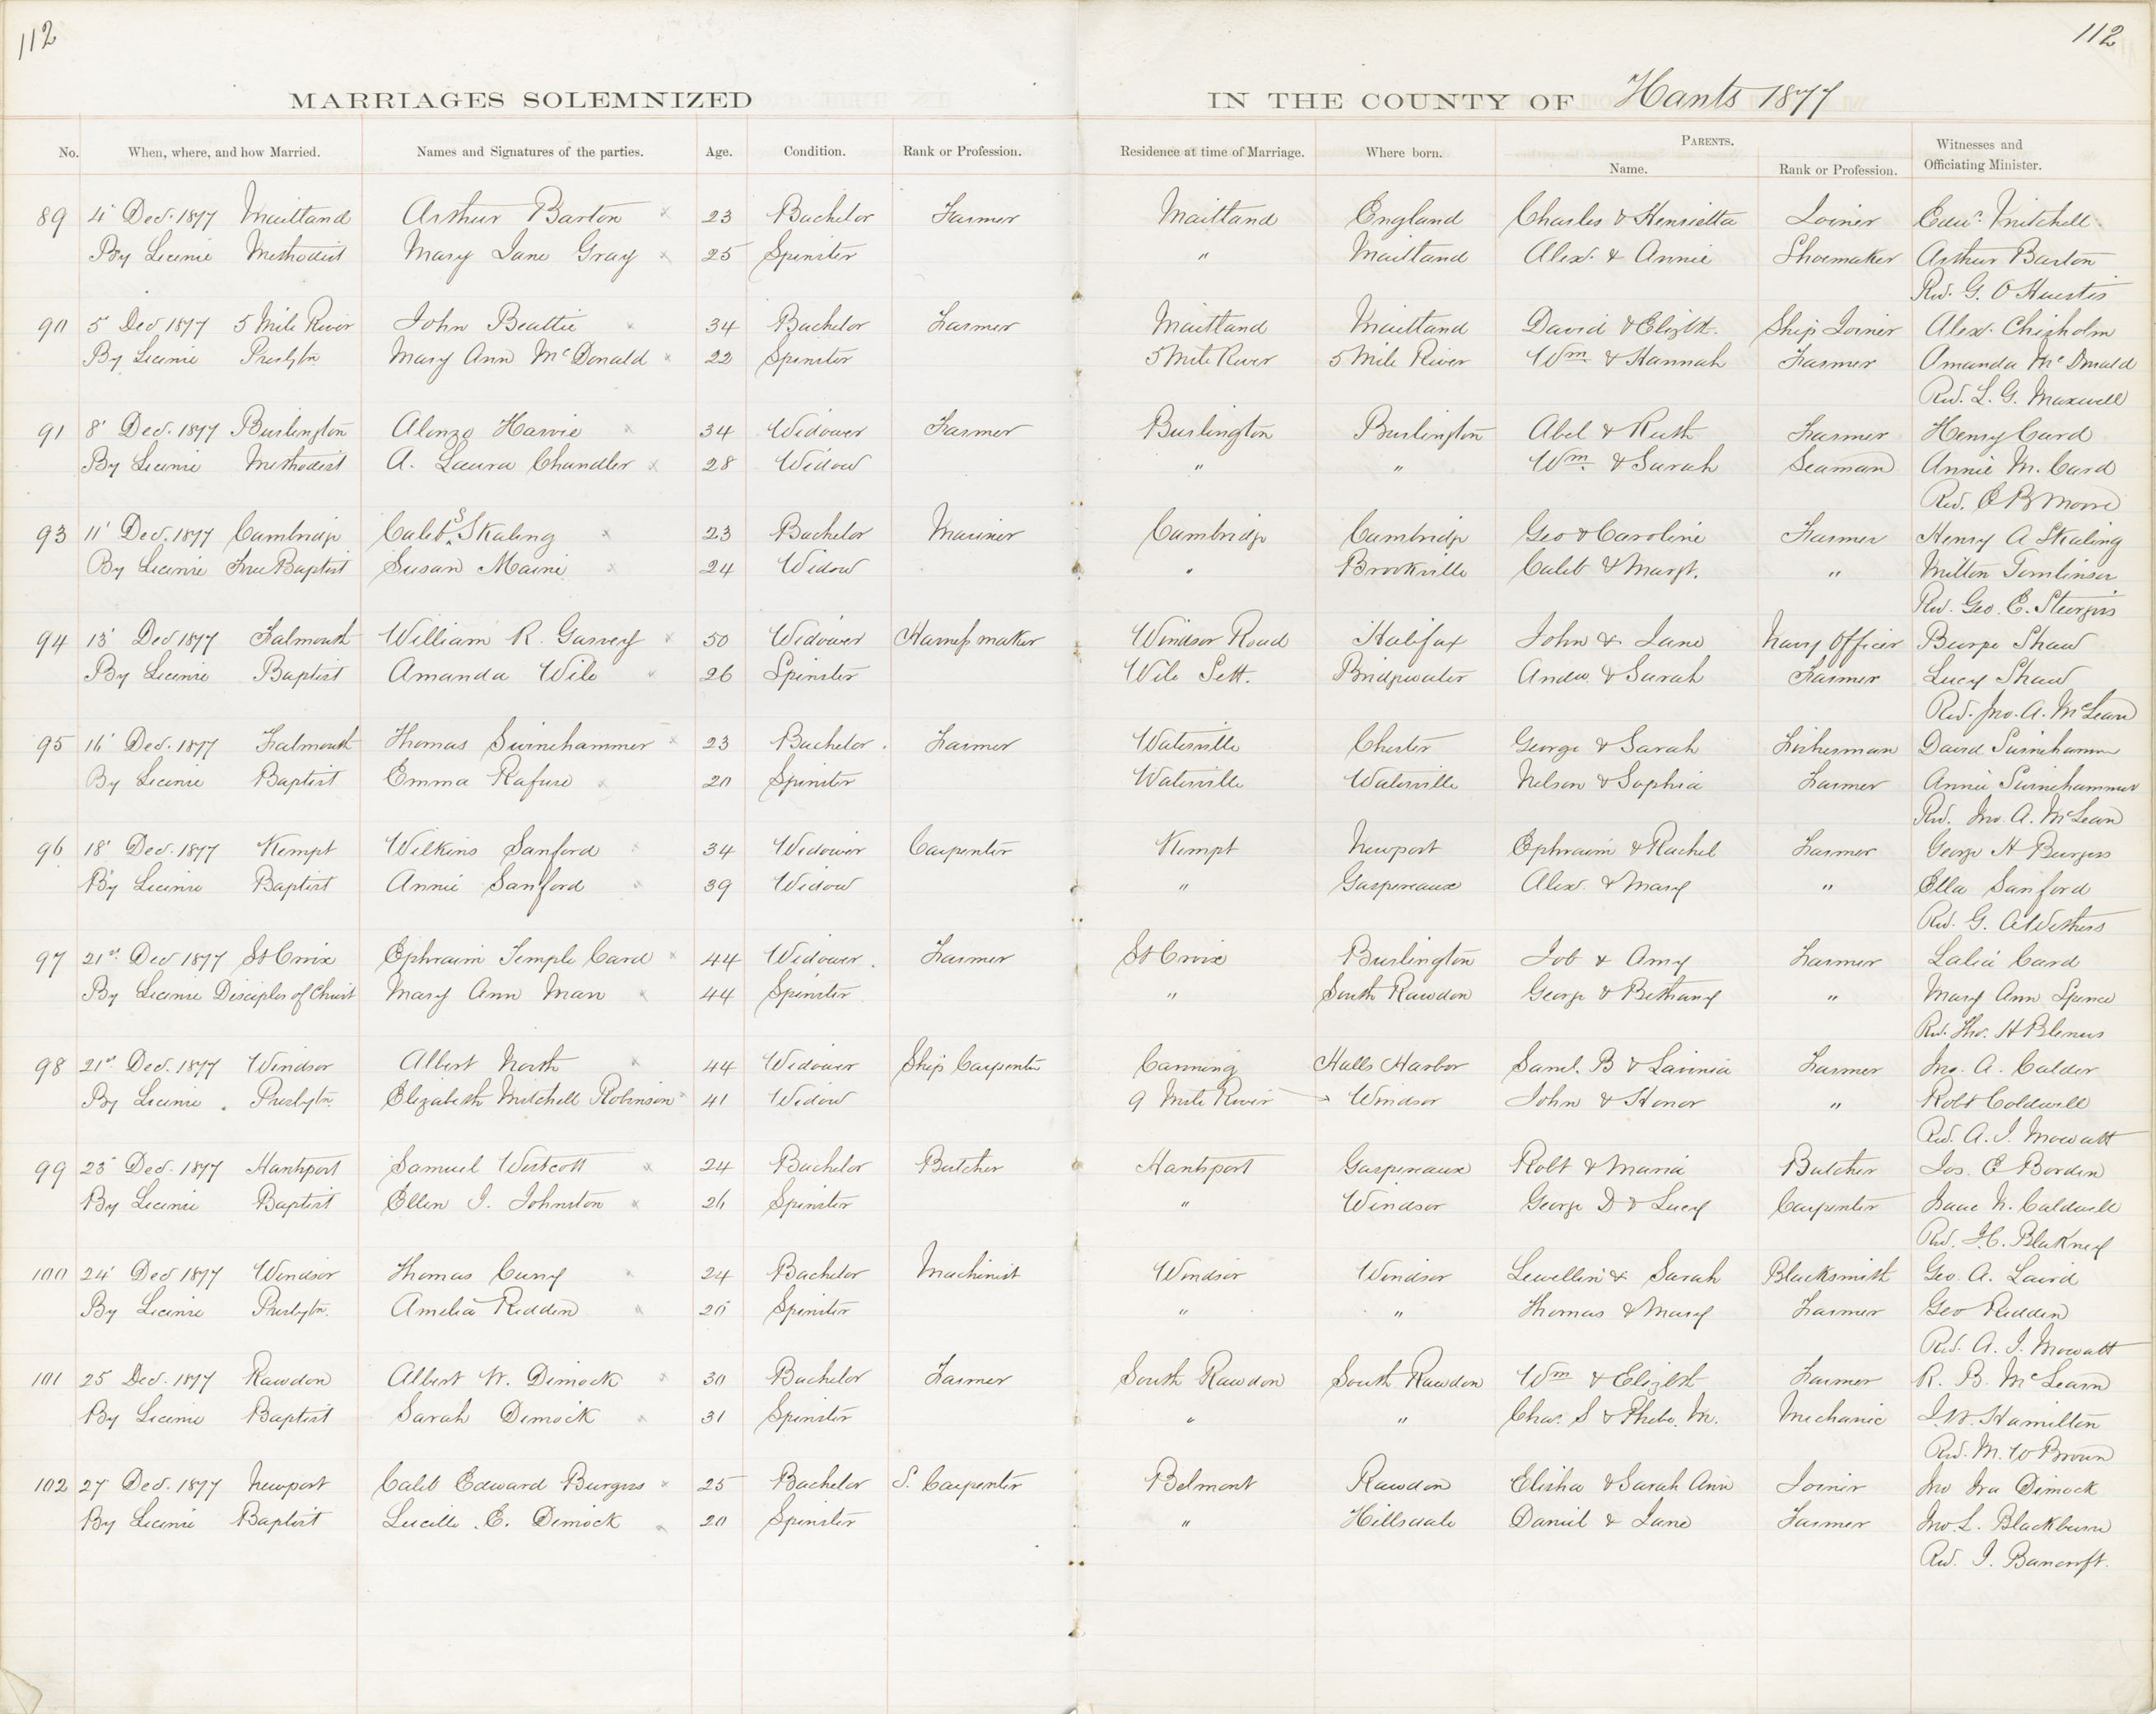 112
112
MARRIAGES SOLEMNIZED IN THE COUNTY OF Hants 1877
No. When, where, and how Married. Names and Signatures of the parties. Age. Condition. Rank or Profession. Residence at time of Marriage. Where born. PARENTS. Witnesses and
Name. Rank or Profession. Officiating Minister.
89 4' Dec. 1877 Maitland Arthur Barton x 23 Bachelor Farmer Maitland England Charles & Henrietta Joiner Edw. Mitchell
By Licence Methodist Mary Jane Gray x 25 Spinster " Maitland Alex. & Annie Shoemaker Arthur Barton
Rev. G. O Huestis
90 5' Dec 1877 5 Mile River John Beattie x 34 Bachelor Farmer Maitland Maitland David & Elizth. Ship Joiner Alex. Chisholm
By Licence Presbytn. Mary Ann McDonald x 22 Spinster 5 Mile River 5 Mile River Wm & Hannah Farmer Amanda McDonald
Rev. L. G. Maxwell
91 8' Dec. 1877 Burlington Alonzo Harvie x 34 Widower Farmer Burlington Burlington Abel & Ruth Farmer Henry Card
By Licence Methodist A. Laura Chandler x 28 Widow " " Wm & Sarah Seaman Annie M. Card
Rev. C B Moore
93 11' Dec. 1877 Cambridge Caleb S Skaling x 23 Bachelor Mariner Cambridge Cambridge Geo & Caroline Farmer Henry A Skaling
By Licence Free Baptist Susan Maine x 24 Widow " Brookville Caleb & Margt. " Milton Tomlinson
Rev. Geo. E. Sturgis
94 13' Dec 1877 Falmouth William R. Garvey x 50 Widower Harness maker Windsor Road Halifax John & Jane Navy Officer Burpe Shaw
By Licence Baptist Amanda Wile x 26 Spinster Wile Sett. Bridgwater Andw. & Sarah Farmer Lucy Shaw
Rev. Jno. A. McLean
95 16' Dec. 1877 Falmouth Thomas Swinehammer x 23 Bachelor Farmer Waterville Chester George & Sarah Fisherman David Swinehammer
By Licence Baptist Emma Rafuse x 20 Spinster Waterville Waterville Nelson & Sophia Farmer Annie Swinehammer
Rev. Jno. A. McLean
96 18' Dec. 1877 Kempt Wilkins Sanford x 34 Widower Carpenter Kempt Newport Ephraim & Rachel Farmer George H Burgess
By Licence Baptist Annie Sanford x 39 Widow " Gaspereaux Alex. & Mary " Ella Sanford
Rev. G. A Wethers
97 21st Dec 1877 St Croix Ephraim Temple Card x 44 Widower Farmer St Croix Burlington Job & Amy Farmer Lalia Card
By Licence Disciples of Christ Mary Ann Man x 44 Spinster " South Rawdon George & Bethany " Mary Ann Spence
Rev. Tho. H Blenus
98 21st Dec. 1877 Windsor Albert North x 44 Widower Ship Carpenter Canning Halls Harbor Saml. B & Lavinia Farmer Jno. A. Calder
By Licence Presbytn. Elizabeth Mitchell Robinson 41 Widow 9 Mile River Windsor John & Honor " Robt Coldwell
Rev. A. J. Mowatt
99 23' Dec. 1877 Hantsport Samuel Westcott x 24 Bachelor Butcher Hantsport Gaspereaux Robt & Maria Butcher Jos. E Borden
By Licence Baptist Ellen J. Johnston x 26 Spinster " Windsor George D & Lucy Carpenter Isaac N. Caldwell
Rev. J.C. Blakney
100 24' Dec 1877 Windsor Thomas Curry x 24 Bachelor Machinist Windsor Windsor Lewellin & Sarah Blacksmith Geo. A. Laird
By Licence Presbytn. Amelia Redden x 20 Spinster " " Thomas & Mary Farmer Geo Redden
Rev. A. J. Mowatt
101 25 Dec. 1877 Rawdon Albert W. Dimock x 30 Bachelor Farmer South Rawdon South Rawdon Wm & Elizbth Farmer R. B. McLearn
By Licence Baptist Sarah Dimock x 31 Spinster " " Chas. S & Phebe. M. Mechanic J. W. Hamilton
Rev. M. W Brown
102 27 Dec. 1877 Newport Caleb Edward Burgess x 25 Bachelor S. Carpenter Belmont Rawdon Elisha & Sarah Ann Joiner Jno Ira Dimock
By Licence Baptist Lucille. E. Dimock x 20 Spinster " Hillsdale Daniel & Jane Farmer Jno. L. Blackburn
Rev. J. Bancroft.